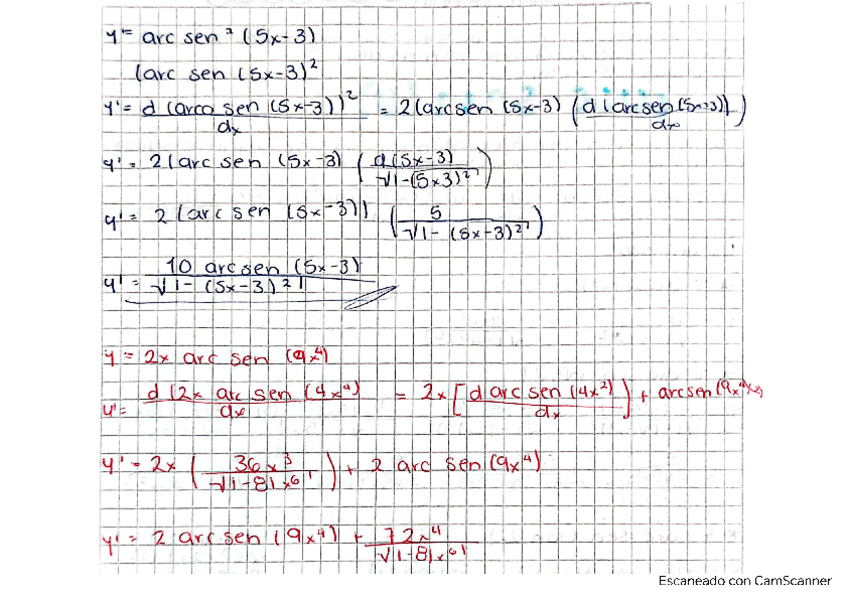 y = arc sen² (5x-3)
(arc sen (5x-3)²
y' = d (arco sen (5x-3))² / dx = 2(arcsen (5x-3) (d(arcsen (5x-3)) / dx)
y' = 2(arc sen (5x-3) (d(5x-3) / √1-(5x3)²)
y' = 2 (arc sen (5x-3)) (5 / √1-(5x-3)²)
y' = 10 arcsen (5x-3) / √1-(5x-3)²
y = 2x arc sen (9x⁴)
y' = d(2x arc sen (4x⁴) / dx = 2x [d arc sen (4x²) / dx] + arcsen (9x⁴)
y' = 2x (36x³ / √1-81x⁶) + 2 arc sen (9x⁴)
y' = 2 arc sen (9x⁴) + 72x⁴ / √1-81x⁶
Escaneado con CamScanner